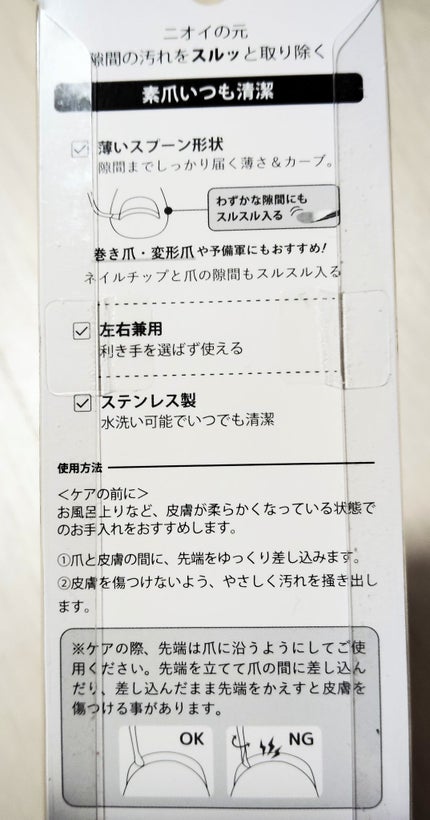 ニオイの元
隙間の汚れをスルッと取り除く
素爪いつも清潔
薄いスプーン形状
隙間までしっかり届く薄さ＆カーブ。
わずかな隙間にも
スルスル入る
巻き爪・変形爪や予備軍にもおすすめ!
ネイルチップと爪の隙間もスルスル入る
左右兼用
利き手を選ばず使える
ステンレス製
水洗い可能でいつでも清潔
使用方法
＜ケアの前に＞
お風呂上りなど、皮膚が柔らかくなっている状態で
のお手入れをおすすめします。
①爪と皮膚の間に、先端をゆっくり差し込みます。
②皮膚を傷つけないよう、やさしく汚れを掻き出し
ます。
※ケアの際、先端は爪に沿うようにしてご使
用ください。先端を立てて爪の間に差し込ん
だり、差し込んだまま先端をかえすと皮膚を
傷つける事があります。
OK
NG